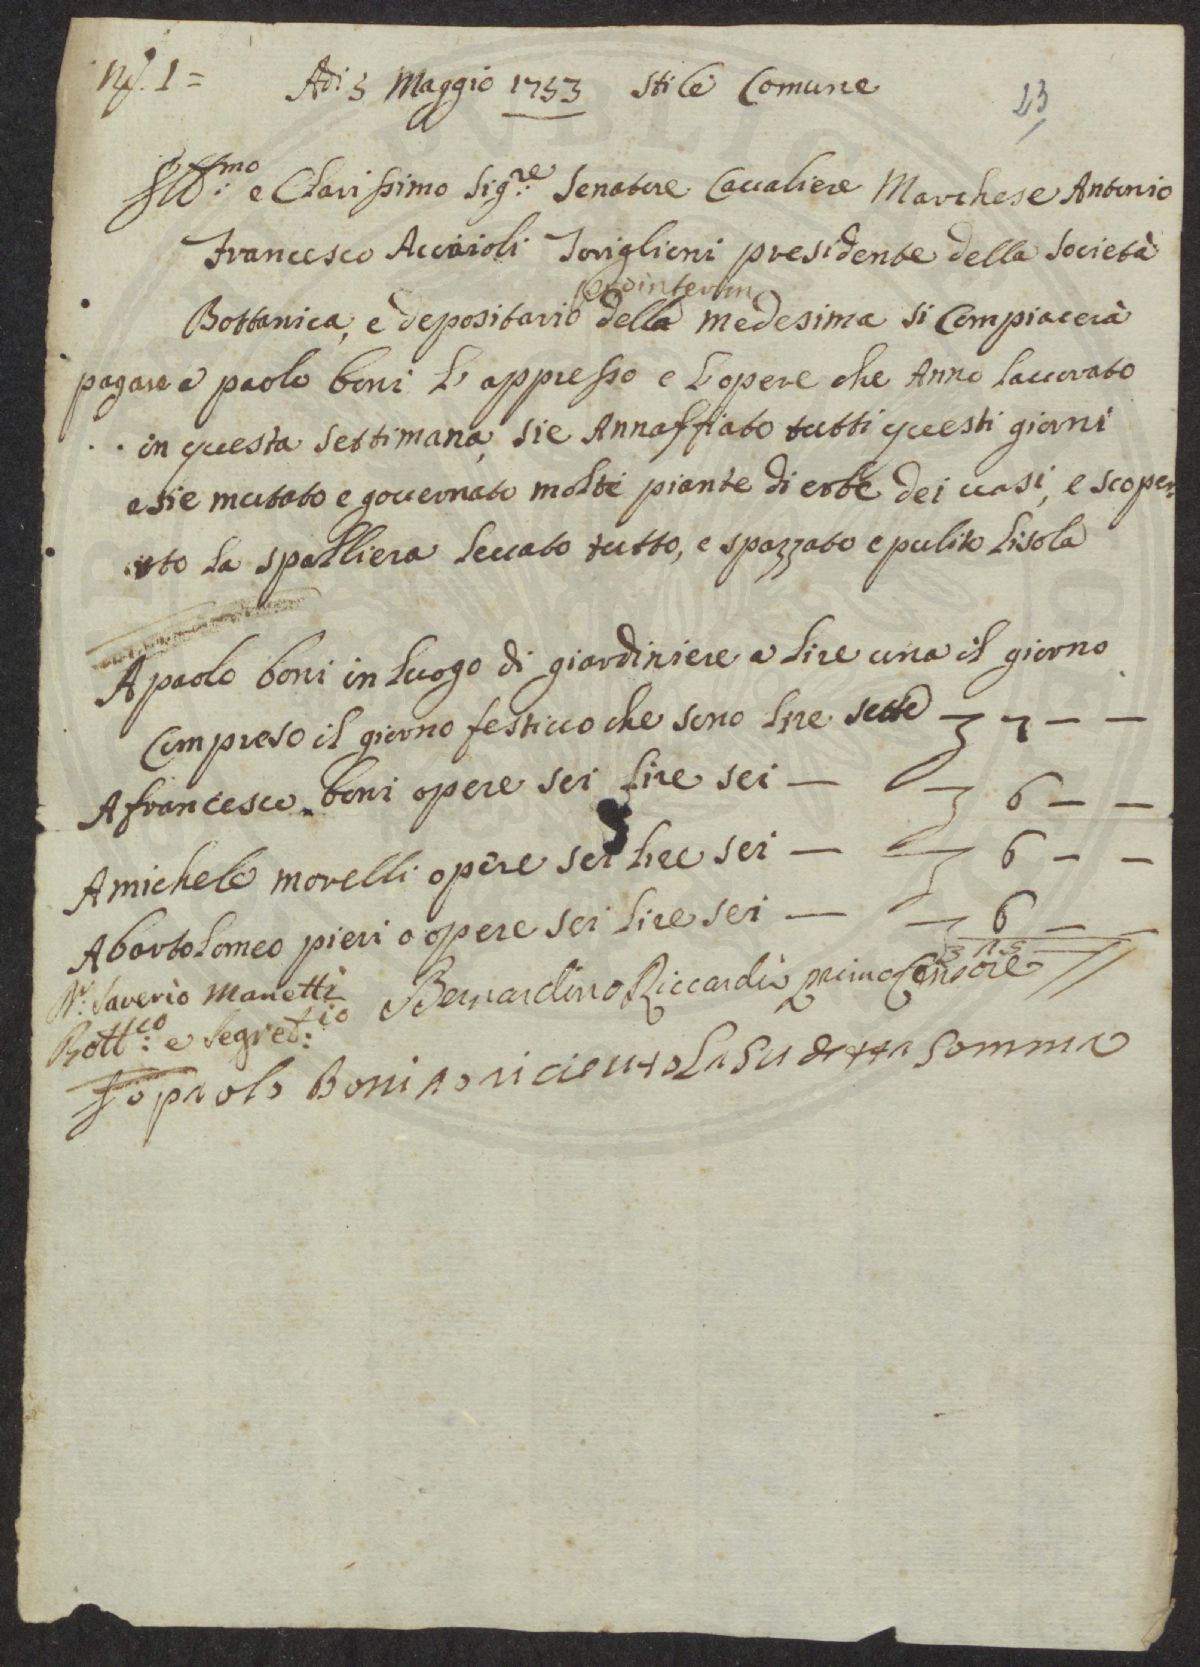 N.o 1 = Adi 5 Maggio 1753 Stile Comune
23
Ill.mo e Clarissimo Sig.re Senatore Cavaliere Marchese Antonio
Francesco Acciaioli Toriglioni presidente della Società
prointerim
Bottanica, e depositario della medesima si Compiacerà
pagare a paolo boni L' appresso e L'opere che Anno Lavorato
in questa settimana, sie Annaffiato tutti questi giorni
e sie mutato e governato molte piante di erbe dei vasi, e scoper-
to La spalliera Levato tutto, e spazzato e pulito Lisola
A paolo boni in Luogo di giardiniere a Lire una il giorno
Compreso il giorno festivo che sono Lire sette — 7 — —
A francesco boni opere sei Lire sei — 6 — —
A michele morelli opere sei Lire sei — 6 — —
A bartolomeo pieri o opere sei Lire sei — 6 — —
25
Saverio Manetti
Bernardino Riccardi primo Censore
Bott.co e Segret.io
Io paolo Boni o riceuto La su detta somma